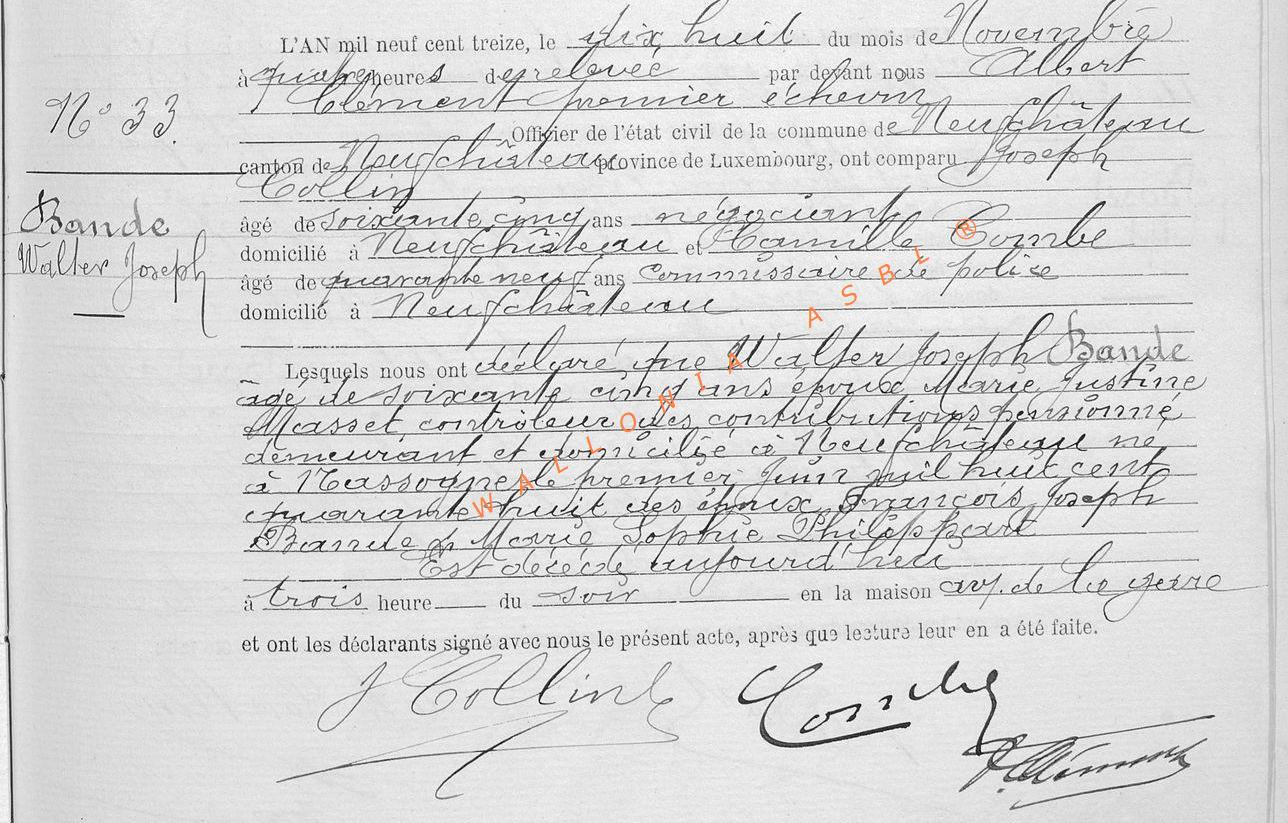 L'AN mil neuf cent treize, le dix huit du mois de Novembre
à quatre heures de relevée par devant nous Albert
Clément premier échevin
Officier de l'état civil de la commune de Neufchâteau
canton de Neufchâteau province de Luxembourg, ont comparu Joseph
Collin
âgé de soixante cinq ans négociant
domicilié à Neufchâteau et Camille Combe
âgé de quarante neuf ans Commissaire de police
domicilié à Neufchâteau
Lesquels nous ont déclaré que Walter Joseph Bande
âgé de soixante cinq ans époux Marie Justine
Masset, contrôleur des contributions pensionné
demeurant et domicilié à Neufchâteau né
à Nassogne le premier Juin mil huit cent
quarante huit des époux François Joseph
Bande & Marie Sophie Philippart
Est décédé aujourd'hui
à trois heure du soir en la maison av. de la gare
et ont les déclarants signé avec nous le présent acte, après que lecture leur en a été faite.
J Collin
Combe
A. Clément
N° 33.
Bande
Walter Joseph
WALLONIA ASBL ®